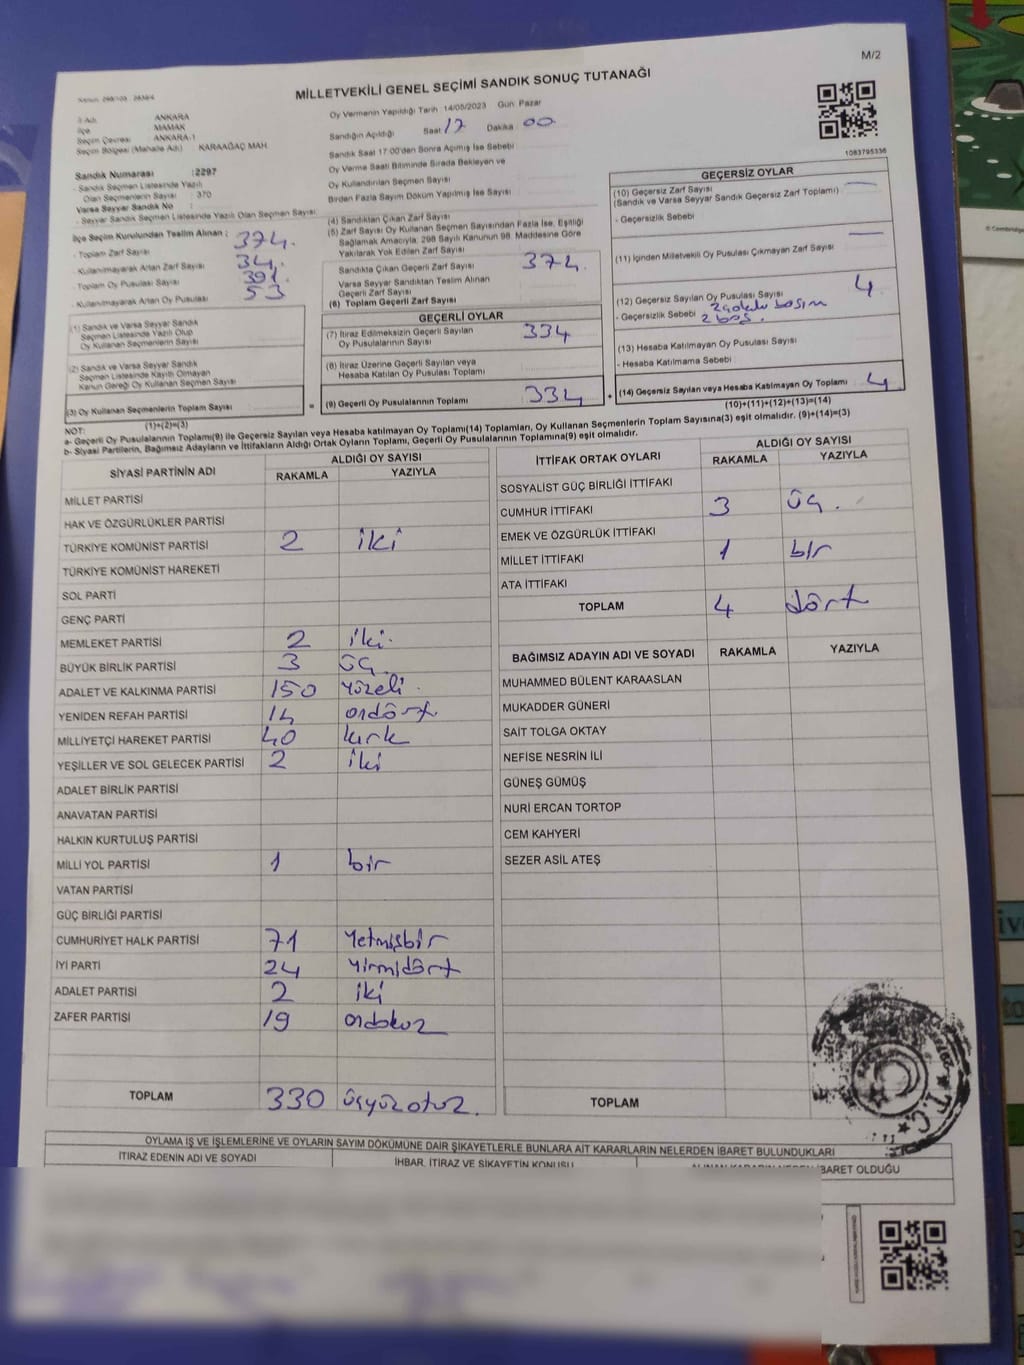 M/2
MİLLETVEKİLİ GENEL SEÇİMİ SANDIK SONUÇ TUTANAĞI
İl Adı ANKARA
İlçe MAMAK
Seçim Çevresi ANKARA-1
Seçim Bölgesi (Mahalle Adı) KARAAĞAÇ MAH.
Sandık Numarası :2297
- Sandık Seçmen Listesinde Yazılı
Olan Seçmenlerin Sayısı : 370
Varsa Seyyar Sandık No :
- Seyyar Sandık Seçmen Listesinde Yazılı Olan Seçmen Sayısı:
İlçe Seçim Kurulundan Teslim Alınan ;
- Toplam Zarf Sayısı 374.
- Kullanılmayarak Artan Zarf Sayısı 34.
- Toplam Oy Pusulası Sayısı 391.
- Kullanılmayarak Artan Oy Pusulası 53
(1) Sandık ve Varsa Seyyar Sandık
Seçmen Listesinde Yazılı Olup
Oy Kullanan Seçmenlerin Sayısı
(2) Sandık ve Varsa Seyyar Sandık
Seçmen Listesinde Kayıtlı Olmayan
Kanun Gereği Oy Kullanan Seçmen Sayısı
(3) Oy Kullanan Seçmenlerin Toplam Sayısı =
(1)+(2)=(3)
Oy Vermenin Yapıldığı Tarih : 14/05/2023 Gün: Pazar
Sandığın Açıldığı Saat 17 Dakika 00
Sandık Saat 17:00'den Sonra Açılmış İse Sebebi :
Oy Verme Saati Bitiminde Sırada Bekleyen ve
Oy Kullandırılan Seçmen Sayısı
Birden Fazla Sayım Döküm Yapılmış İse Sayısı
(4) Sandıktan Çıkan Zarf Sayısı
(5) Zarf Sayısı Oy Kullanan Seçmen Sayısından Fazla İse, Eşitliği
Sağlamak Amacıyla, 298 Sayılı Kanunun 98. Maddesine Göre
Yakılarak Yok Edilen Zarf Sayısı
Sandıkta Çıkan Geçerli Zarf Sayısı 374.
Varsa Seyyar Sandıktan Teslim Alınan
Geçerli Zarf Sayısı
(6) Toplam Geçerli Zarf Sayısı
GEÇERLİ OYLAR
(7) İtiraz Edilmeksizin Geçerli Sayılan
Oy Pusulalarının Sayısı 334
(8) İtiraz Üzerine Geçerli Sayılan veya
Hesaba Katılan Oy Pusulası Toplamı
(9) Geçerli Oy Pusulalarının Toplamı 334 +
1083795336
GEÇERSİZ OYLAR
(10) Geçersiz Zarf Sayısı
(Sandık ve Varsa Seyyar Sandık Geçersiz Zarf Toplamı)
- Geçersizlik Sebebi
(11) İçinden Milletvekili Oy Pusulası Çıkmayan Zarf Sayısı
(12) Geçersiz Sayılan Oy Pusulası Sayısı 4
- Geçersizlik Sebebi
2 boş.
(13) Hesaba Katılmayan Oy Pusulası Sayısı
- Hesaba Katılmama Sebebi
(14) Geçersiz Sayılan veya Hesaba Katılmayan Oy Toplamı 4
(10)+(11)+(12)+(13)=(14)
NOT:
a- Geçerli Oy Pusulalarının Toplamı(9) ile Geçersiz Sayılan veya Hesaba katılmayan Oy Toplamı(14) Toplamları, Oy Kullanan Seçmenlerin Toplam Sayısına(3) eşit olmalıdır. (9)+(14)=(3)
b- Siyasi Partilerin, Bağımsız Adayların ve İttifakların Aldığı Ortak Oyların Toplamı, Geçerli Oy Pusulalarının Toplamına(9) eşit olmalıdır.
SİYASİ PARTİNİN ADI ALDIĞI OY SAYISI
RAKAMLA YAZIYLA
MİLLET PARTİSİ
HAK VE ÖZGÜRLÜKLER PARTİSİ
TÜRKİYE KOMÜNİST PARTİSİ 2 iki
TÜRKİYE KOMÜNİST HAREKETİ
SOL PARTİ
GENÇ PARTİ
MEMLEKET PARTİSİ 2 iki.
BÜYÜK BİRLİK PARTİSİ 3 üç.
ADALET VE KALKINMA PARTİSİ 150 yüzelli.
YENİDEN REFAH PARTİSİ 14 ondört
MİLLİYETÇİ HAREKET PARTİSİ 40 kırk
YEŞİLLER VE SOL GELECEK PARTİSİ 2 iki
ADALET BİRLİK PARTİSİ
ANAVATAN PARTİSİ
HALKIN KURTULUŞ PARTİSİ
MİLLİ YOL PARTİSİ 1 bir
VATAN PARTİSİ
GÜÇ BİRLİĞİ PARTİSİ
CUMHURİYET HALK PARTİSİ 71 Yetmişbir
İYİ PARTİ 24 Yirmidört
ADALET PARTİSİ 2 iki
ZAFER PARTİSİ 19 ondokuz
TOPLAM 330 üçyüzotuz.
İTTİFAK ORTAK OYLARI ALDIĞI OY SAYISI
RAKAMLA YAZIYLA
SOSYALİST GÜÇ BİRLİĞİ İTTİFAKI
CUMHUR İTTİFAKI 3 üç.
EMEK VE ÖZGÜRLÜK İTTİFAKI
MİLLET İTTİFAKI 1 bir
ATA İTTİFAKI
TOPLAM 4 dört
BAĞIMSIZ ADAYIN ADI VE SOYADI RAKAMLA YAZIYLA
MUHAMMED BÜLENT KARAASLAN
MUKADDER GÜNERİ
SAİT TOLGA OKTAY
NEFİSE NESRİN İLİ
GÜNEŞ GÜMÜŞ
NURİ ERCAN TORTOP
CEM KAHYERİ
SEZER ASİL ATEŞ
TOPLAM
T.C.
OYLAMA İŞ VE İŞLEMLERİNE VE OYLARIN SAYIM DÖKÜMÜNE DAİR ŞİKAYETLERLE BUNLARA AİT KARARLARIN NELERDEN İBARET BULUNDUKLARI
İTİRAZ EDENİN ADI VE SOYADI İHBAR, İTİRAZ VE ŞİKAYETİN KONUSU İBARET OLDUĞU